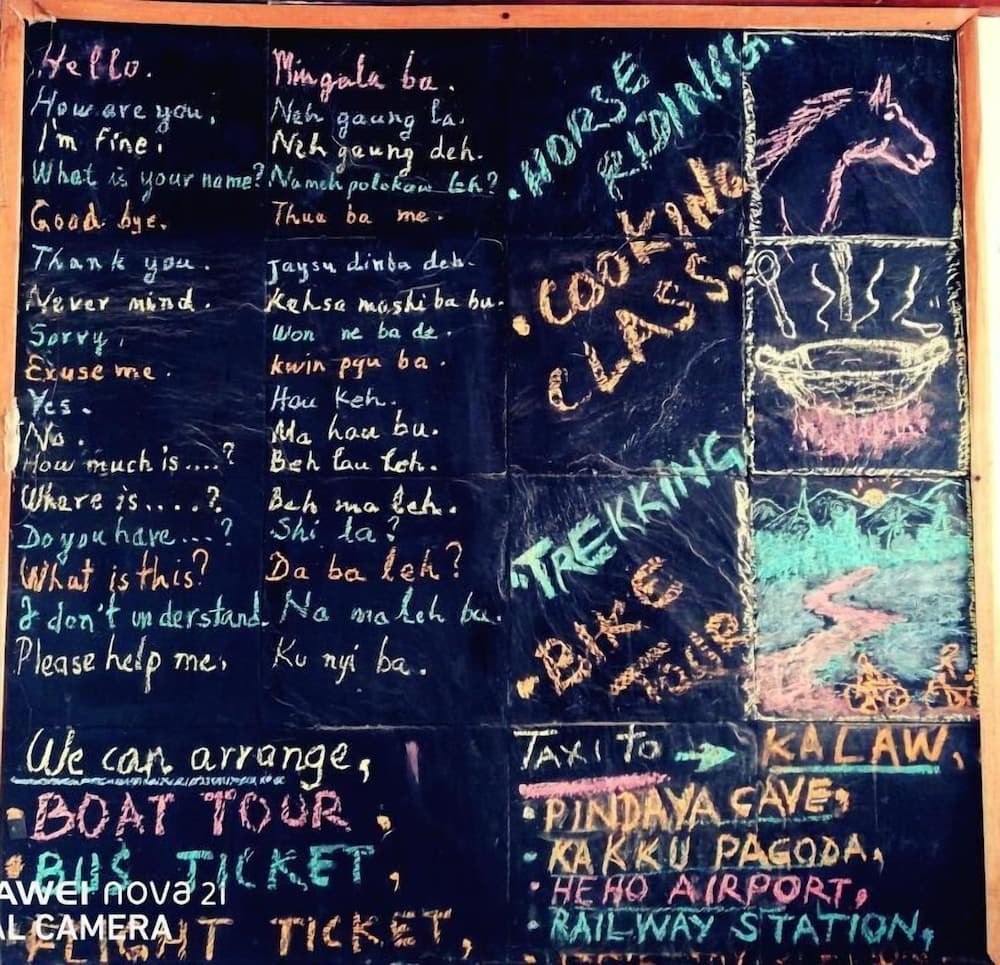 Hello. Mingala ba.
How are you, Neh gaung la.
I'm fine. Neh gaung deh.
What is your name? Nameh polokaw leh?
Good bye. Thua ba me.
Thank you. Jaysu dinba deh.
Never mind. Kehsa moshi ba bu.
Sorry, Won ne ba de.
Exuse me. kwin pyu ba.
Yes. Hou keh.
No. Ma hau bu.
How much is....? Beh lau leh.
Where is.....? Beh ma leh.
Do you have....? Shi la?
What is this? Da ba leh?
I don't understand. Na ma leh bu.
Please help me. Ku nyi ba.
.HORSE
RIDING.
.COOKING
CLASS.
.TREKKING
.BIKE
TOUR
We can arrange,
.BOAT TOUR,
BUS TICKET,
FLIGHT TICKET,
TAXI TO → KALAW,
.PINDAYA CAVE,
.KAKKU PAGODA,
.HEHO AIRPORT,
.RAILWAY STATION,
AWEI nova 2i
AL CAMERA